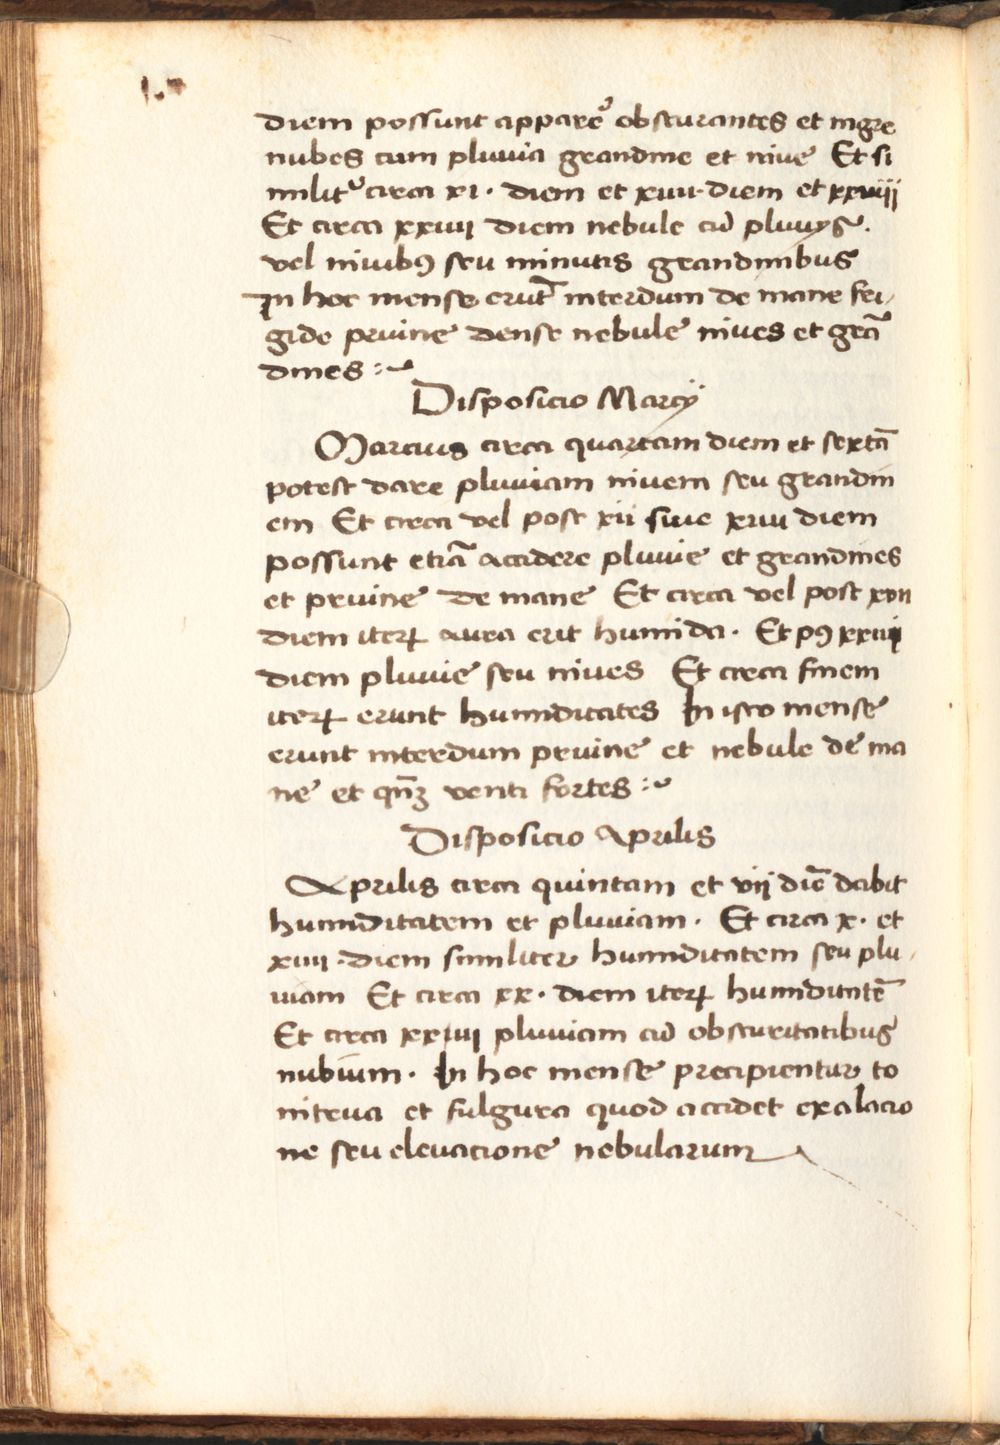 diem possunt apparé obscurantes et nigre
nubes cum pluvia grandine et nive Et si
milit circa xi. diem et xviii diem et xxviiij
Et circa xxiiii diem nebule cū pluvys.
vel nivibꝰ seu minutis grandinibus
In hoc mense erūt interdum de mane fri
gide pruine dense nebule nives et grā
dines :~
Disposicio Marcij
Marcius circa quartam diem et sextā
potest dare pluviam nivem seu grandin
em Et circa vel post xii sive xiiii diem
possunt etiā accidere pluvie et grandines
et pruine de mane Et circa vel post xvii
diem iterꝝ aura erit humida. Et pꝰ xxiiij
diem pluvie seu nives Et circa finem
iterꝝ erunt humiditates In isto mense
erunt interdum pruine et nebule de ma
ne et qn̄ꝫ venti fortes :~
Disposicio Aprilis
Aprilis circa quintam et vij diē dabit
humiditatem et pluviam. Et circa x. et
xiiii. diem similiter humiditatem seu plu
viam Et circa xx. diem iterꝝ humiditatē
Et circa xxiiii pluviam cū obscuritatibus
nubium. In hoc mense precipientur to
nitrua et fulgura quod accidet exalacio
ne seu elevacione nebularum